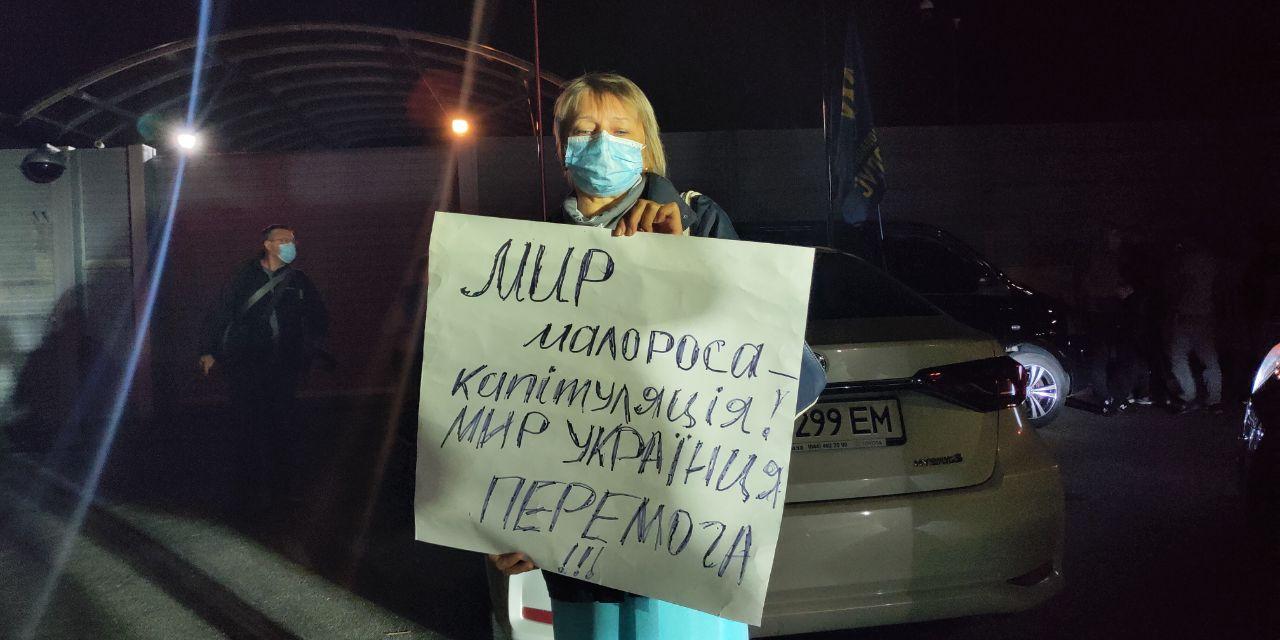 МИР
малороса –
капітуляція!
МИР УКРАЇНЦЯ
ПЕРЕМОГА
!!!
299 EM
HYBRID